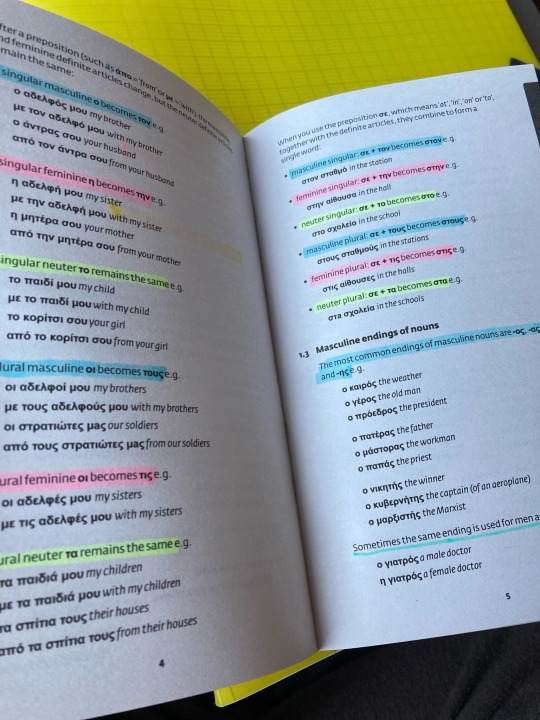 fter a preposition (such as απο = 'from' or με = with), the masculine
nd feminine definite articles change, but the neuter definite articles
main the same:
singular masculine ο becomes τον e.g.
ο αδελφός μου my brother
με τον αδελφό μου with my brother
ο άντρας σου your husband
από τον άντρα σου from your husband
singular feminine η becomes την e.g.
η αδελφή μου my sister
με την αδελφή μου with my sister
η μητέρα σου your mother
από την μητέρα σου from your mother
ingular neuter το remains the same e.g.
το παιδί μου my child
με το παιδί μου with my child
το κορίτσι σου your girl
από το κορίτσι σου from your girl
lural masculine οι becomes τους e.g.
οι αδελφοί μου my brothers
με τους αδελφούς μου with my brothers
οι στρατιώτες μας our soldiers
από τους στρατιώτες μας from our soldiers
ural feminine οι becomes τις e.g.
οι αδελφές μου my sisters
με τις αδελφές μου with my sisters
ural neuter τα remains the same e.g.
τα παιδιά μου my children
με τα παιδιά μου with my children
τα σπίτια τους their houses
από τα σπίτια τους from their houses
4
When you use the preposition σε, which means 'at', 'in', 'on' or 'to',
together with the definite articles, they combine to form a
single word:
• masculine singular: σε + τον becomes στον e.g.
στον σταθμό in the station
• feminine singular: σε + την becomes στην e.g.
στην αίθουσα in the hall
neuter singular: σε + το becomes στο e.g.
στο σχολείο in the school
• masculine plural: σε + τους becomes στους e.g.
στους σταθμούς in the stations
• feminine plural: σε + τις becomes στις e.g.
στις αίθουσες in the halls
• neuter plural: σε + τα becomes στα e.g.
στα σχολεία in the schools
1.3 Masculine endings of nouns
The most common endings of masculine nouns are -ος, -ας
and -ης e.g.
ο καιρός the weather
ο γέρος the old man
ο πρόεδρος the president
ο πατέρας the father
ο μάστορας the workman
ο παπάς the priest
ο νικητής the winner
ο κυβερνήτης the captain (of an aeroplane)
ο μαρξιστής the Marxist
Sometimes the same ending is used for men a
ο γιατρός a male doctor
η γιατρός a female doctor
5